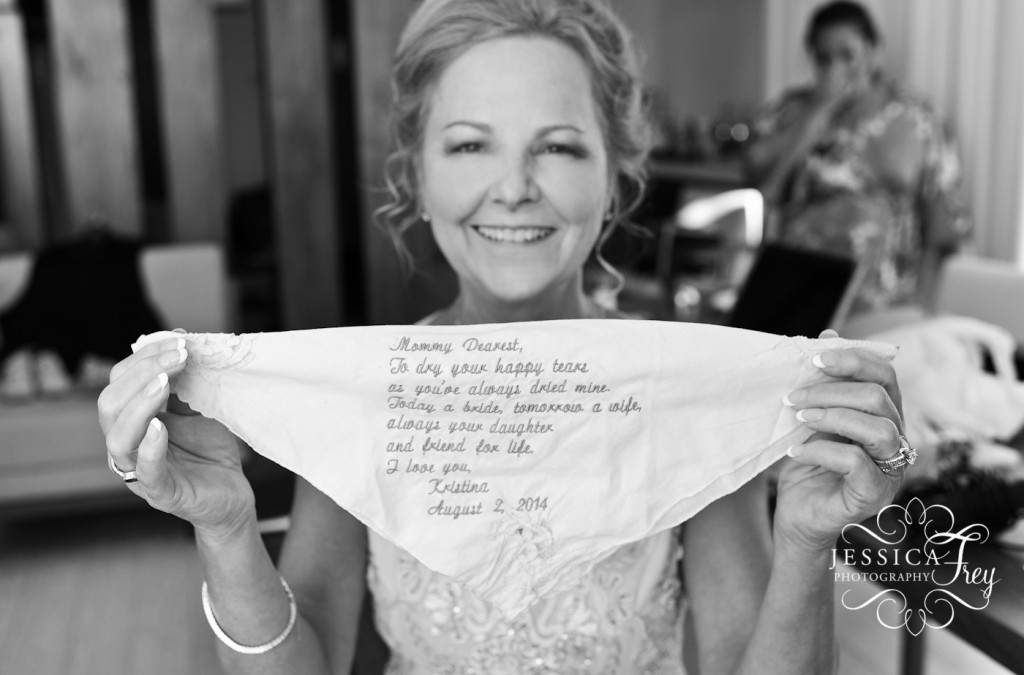 Mommy Dearest,
To dry your happy tears
as you've always dried mine.
Today a bride, tomorrow a wife,
always your daughter
and friend for life.
I love you,
Kristina
August 2, 2014
JESSICA Frey
PHOTOGRAPHY